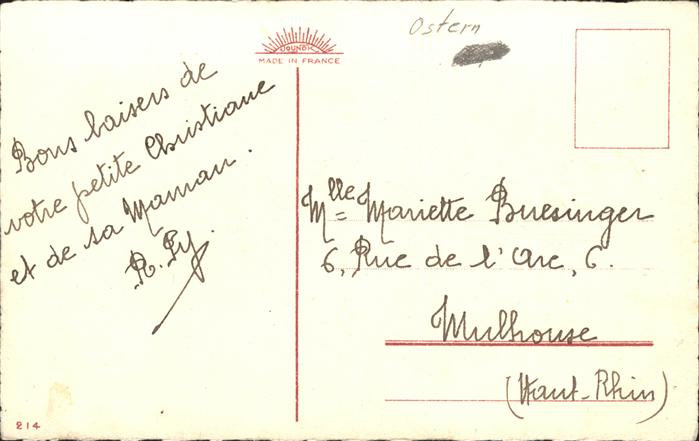 Ostern
MADE IN FRANCE
Bons baisers de
votre petite Christiane
et de sa Maman.
R. Py.
Mlle Mariette Buesinger
6, Rue de l'Arc, 6.
Mulhouse
(Haut-Rhin)
214